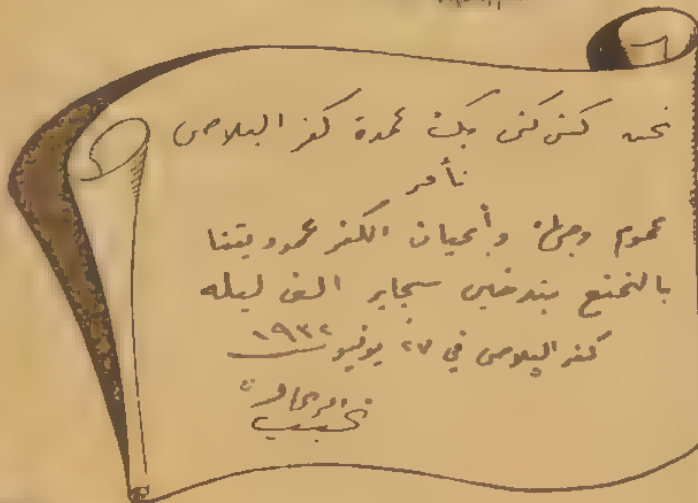 نحن كش كش بك عمدة كفر البلاص
نأمر
عموم وجهاء وأعيان الكفر عمدويتنا
بالتمتع بتدخين سجاير الف ليله
كفر البلاص في ٢٧ يونيو ١٩٣٢
نجيب